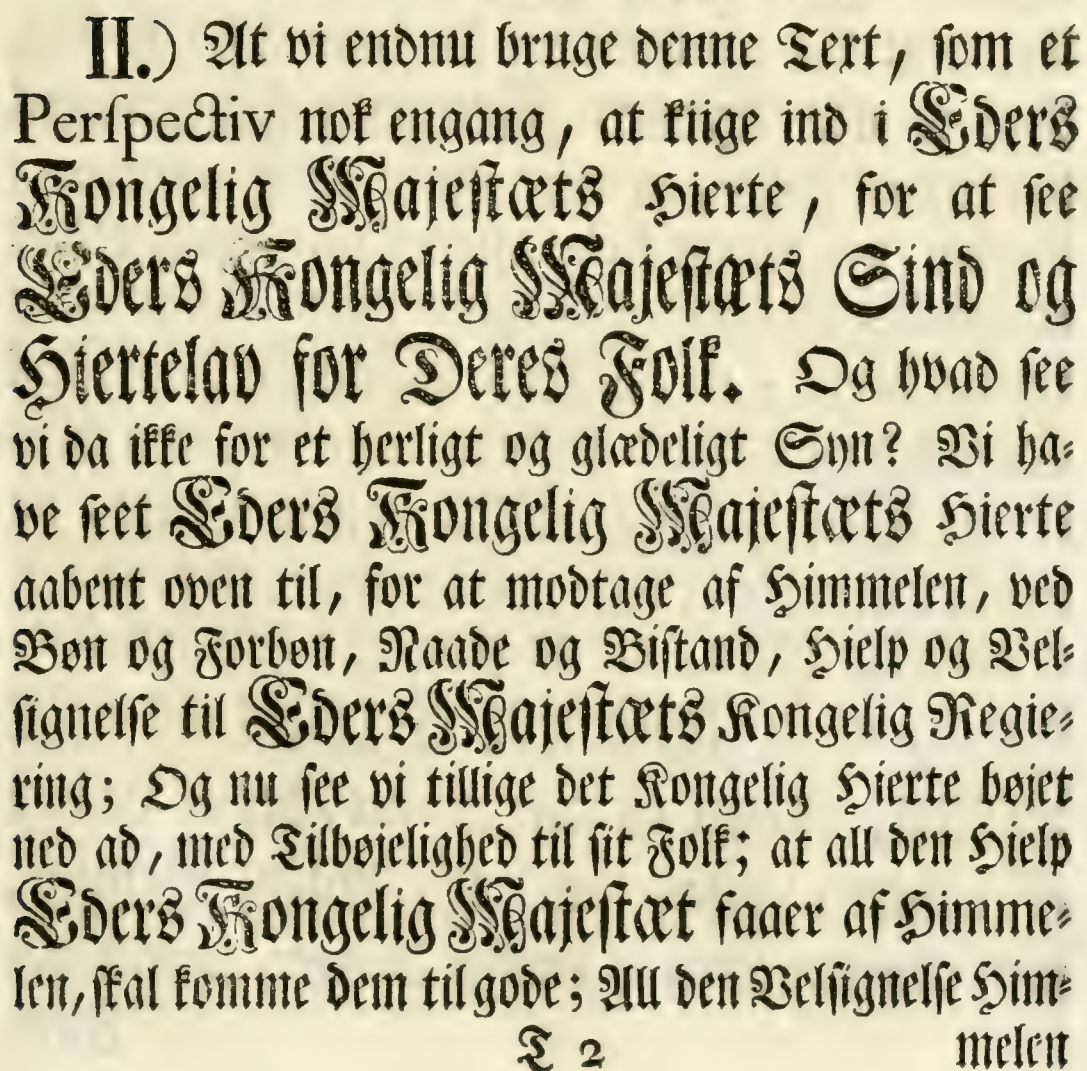 II.) At vi endnu bruge denne Text, som et
Perspectiv nok engang, at kiige ind i Eders
Kongelig Majestæts Hierte, for at see
Eders Kongelig Majestæts Sind og
Hiertelav for Deres Folk. Og hvad see
vi da ikke for et herligt og glædeligt Syn? Vi ha-
ve seet Eders Kongelig Majestæts Hierte
aabent oven til, for at modtage af Himmelen, ved
Bøn og Forbøn, Naade og Bistand, Hielp og Vel-
signelse til Eders Majestæts Kongelig Regie-
ring; Og nu see vi tillige det Kongelig Hierte bøjet
ned ad, med Tilbøjelighed til sit Folk; at all den Hielp
Eders Kongelig Majestæt faaer af Himme-
len, skal komme dem til gode; All den Velsignelse Him-
T 2 melen